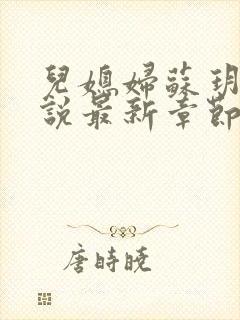 兒媳婦蘇玥
說最新章節
唐時曉